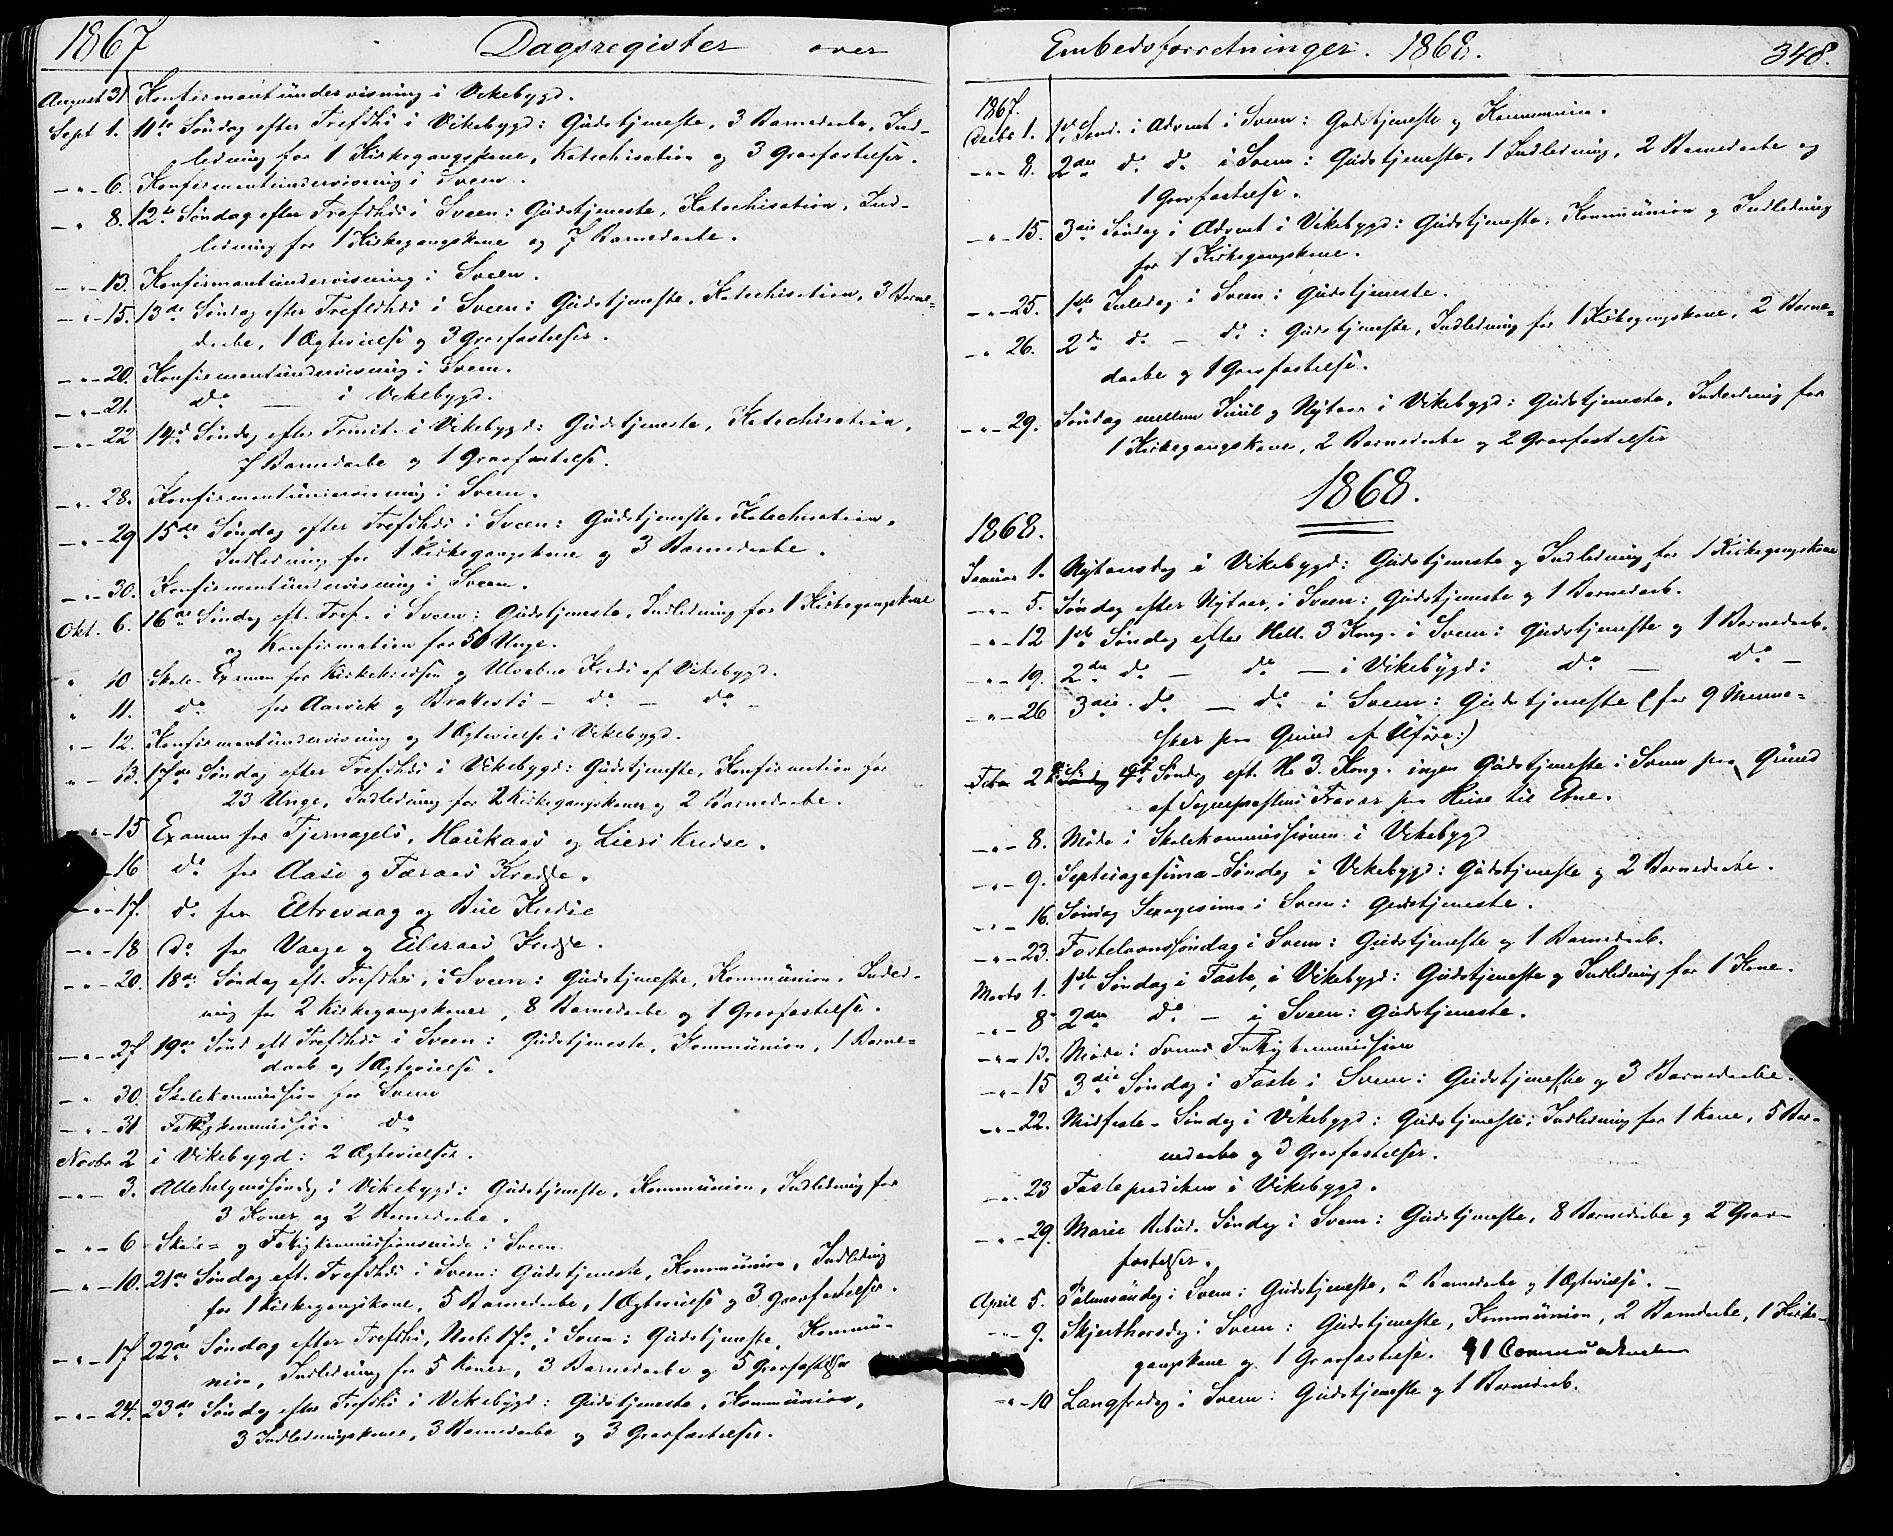 1867 Dagsregister over
August 31 Konfirmantundervisning i Vikebygd.
Sept 1. 11te Søndag efter Trefdhs i Vikebygd: Gudstjeneste, 3 Barnedaabe, Ind-
ledning for 1 Kirkegangskone, Katechisation og 3 Gravfæstelser.
— " — 6. Konfirmantundervisning i Sveen.
— " 8. 12te Søndag efter Trefdhds i Sveen: Gudstjeneste, Katechisation, Ind-
ledning for 1 Kirkegangskone og 7 Barnedaabe.
— " — 13. Konfirmantundervisning i Sveen.
— " — 15. 13de Søndag efter Trefdhds i Sveen: Gudstjeneste, Katechisation, 3 Barne-
daabe, 1 Ægtevielse og 3 Gravfæstelser.
— " — 20. Konfirmantundervisning i Sveen.
— " — 21. do — i Vikebygd.
— " — 22 14de Søndag efter Trinit. i Vikebygd: Gudstjeneste, Katechisation,
7 Barnedaabe og 1 Gravfæstelse.
— " — 28. Konfirmantundervisning i Sveen.
— " — 29 15de Søndag efter Trefdhds i Sveen: Gudstjeneste, Katechisation,
Indledning for 1 Kirkegangskone og 3 Barnedaabe.
— " — 30. Konfirmantundervisning i Sveen.
Okt. 6. 16de Søndag eft. Tref. i Sveen: Gudstjeneste, Indledning for 1 Kirkegangskone
og Konfirmation for 56 Unge.
" 10 Skole-Examen for Kirkekredsen og Ulvebns Kreds af Vikebygd.
" 11. do for Aarvik og Brakestö — do — do —
" — 12. Konfirmantundervisning og 1 Ægtevielse i Vikebygd.
" — 13. 17de Søndag efter Trefdhds i Vikebygd: Gudstjeneste, Konfirmation for
23 Unge, Indledning for 2 Kirkegangskoner og 2 Barnedaabe.
" — 15 Examen for Tjernagels, Haukaas og Liers Kredse.
— 16 do for Aase og Færaas Kredse.
— " — 17. do for Eltrevaag og Bue Kredse
— " — 18 Do for Vaage og Eileraas Kredse.
— " — 20. 18de Søndag eft. Trefdhds, i Sveen: Gudstjeneste, Kommunion, Indled-
ning for 2 Kirkegangskoner, 8 Barnedaabe og 1 Gravfæstelse.
— " — 27 19de Sønd eft Trefdhds i Sveen: Gudstjeneste, Kommunion, 1 Barne-
daab og 1 Ægtevielse.
— " 30. Skolekommission for Sveen
— " — 31 Fattigkommission do
Novbr 2 i Vikebygd: 2 Ægtevielser.
— " — 3. Allehelgenssöndag i Vikebygd: Gudstjeneste, Kommunion, Indledning for
3 Koner og 2 Barnedaabe.
— " — 6 Skole- og Fattigkommissionsmøde i Sveen.
— " — 10. 21de Søndag eft. Trefdhds i Sveen: Gudstjeneste, Kommunion, Indledning
for 1 Kirkegangskone, 5 Barnedaabe, 1 Ægtevielse og 3 Gravfæstelser.
— " — 17 22de Søndag efter Trefdhds, Novb. 17de, i Sveen: Gudstjeneste, Kommu-
nion, Indledning for 5 Koner, 3 Barnedaabe og 5 Gravfæstelser
— " — 24. 23de Søndag efter Trefdhds i Vikebygd: Gudstjeneste, Kommunion,
3 Indledningskoner, 3 Barnedaabe og 3 Gravfæstelser.
Embedsforretninger. 1868. 348.
1867.
Decbr 1. 1ste Sønd. i Advent i Sveen: Gudstjeneste og Kommunion.
— " — 8. 2den do do i Sveen: Gudstjeneste, 1 Indledning, 2 Barnedaabe og
1 Gravfæstelse.
— " — 15. 3die Søndag i Advent i Vikebygd: Gudstjeneste, Kommunion og Indledning
for 1 Kirkegangskone.
— " — 25. 1ste Juledag i Sveen: Gudstjeneste.
— " 26. 2den do — do: Gudstjeneste, Indledning for 1 Kirkegangskone, 2 Barne-
daabe og 1 Gravfæstelse.
— " — 29. Søndag mellem Juul og Nytaar i Vikebygd: Gudstjeneste, Indledning for
1 Kirkegangskone, 2 Barnedaabe og 2 Gravfæstelser
1868.
1868.
Januar 1. Nytaarsdag i Vikebygd: Gudstjeneste og Indledning for 1 Kirkegangskone
— " — 5. Søndag efter Nytaar, i Sveen: Gudstjeneste og 1 Barnedaab.
— " — 12 1ste Søndag efter Hell. 3 Kong. i Sveen: Gudstjeneste og 1 Barnedaab.
— " — 19. 2den do — do — i Vikebygd: do — do —
— " — 26 3die do — do i Sveen: Gudstjeneste (for 9 Menne-
sker paa Grund af Uføre:)
Febr 2 4de Søndag eft. H. 3. Kong. ingen Gudstjeneste i Sveen paa Grund
af Sognepræstens Fravær paa Reise til Etne.
— " — 8. Møde i Skolekommissionen i Vikebygd
— " — 9. Septuagesima-Søndag i Vikebygd: Gudstjeneste og 2 Barnedaabe.
— " — 16. Søndag Sexagesima i Sveen: Gudstjeneste.
— " — 23. Fastelavnssøndag i Sveen: Gudstjeneste og 1 Barnedaab.
Marts 1. 1ste Søndag i Faste, i Vikebygd: Gudstjeneste og Indledning for 1 Kone.
— " — 8 2den do — i Sveen: Gudstjeneste.
— " — 13. Møde i Sveens Fattigkommission
— " — 15 3die Søndag i Faste i Sveen: Gudstjeneste og 3 Barnedaabe.
— " — 22. Midfaste-Søndag i Vikebygd: Gudstjeneste, Indledning for 1 Kone, 5 Bar-
nedaabe og 3 Gravfæstelser.
— " — 23 Fasteprædiken i Vikebygd.
— " — 29. Mariæ Bebud. Søndag i Sveen: Gudstjeneste, 8 Barnedaabe og 2 Grav-
fæstelser.
April 5. Palmesøndag i Sveen: Gudstjeneste, 2 Barnedaabe og 1 Ægtevielse. —
— " — 9. Skjærthorsdag i Sveen: Gudstjeneste, Kommunion, 2 Barnedaabe, 1 Kirke-
gangskone og 1 Gravfæstelse. 91 Communicanter
— " — 10 Langfredag i Sveen: Gudstjeneste og 1 Barnedaab.